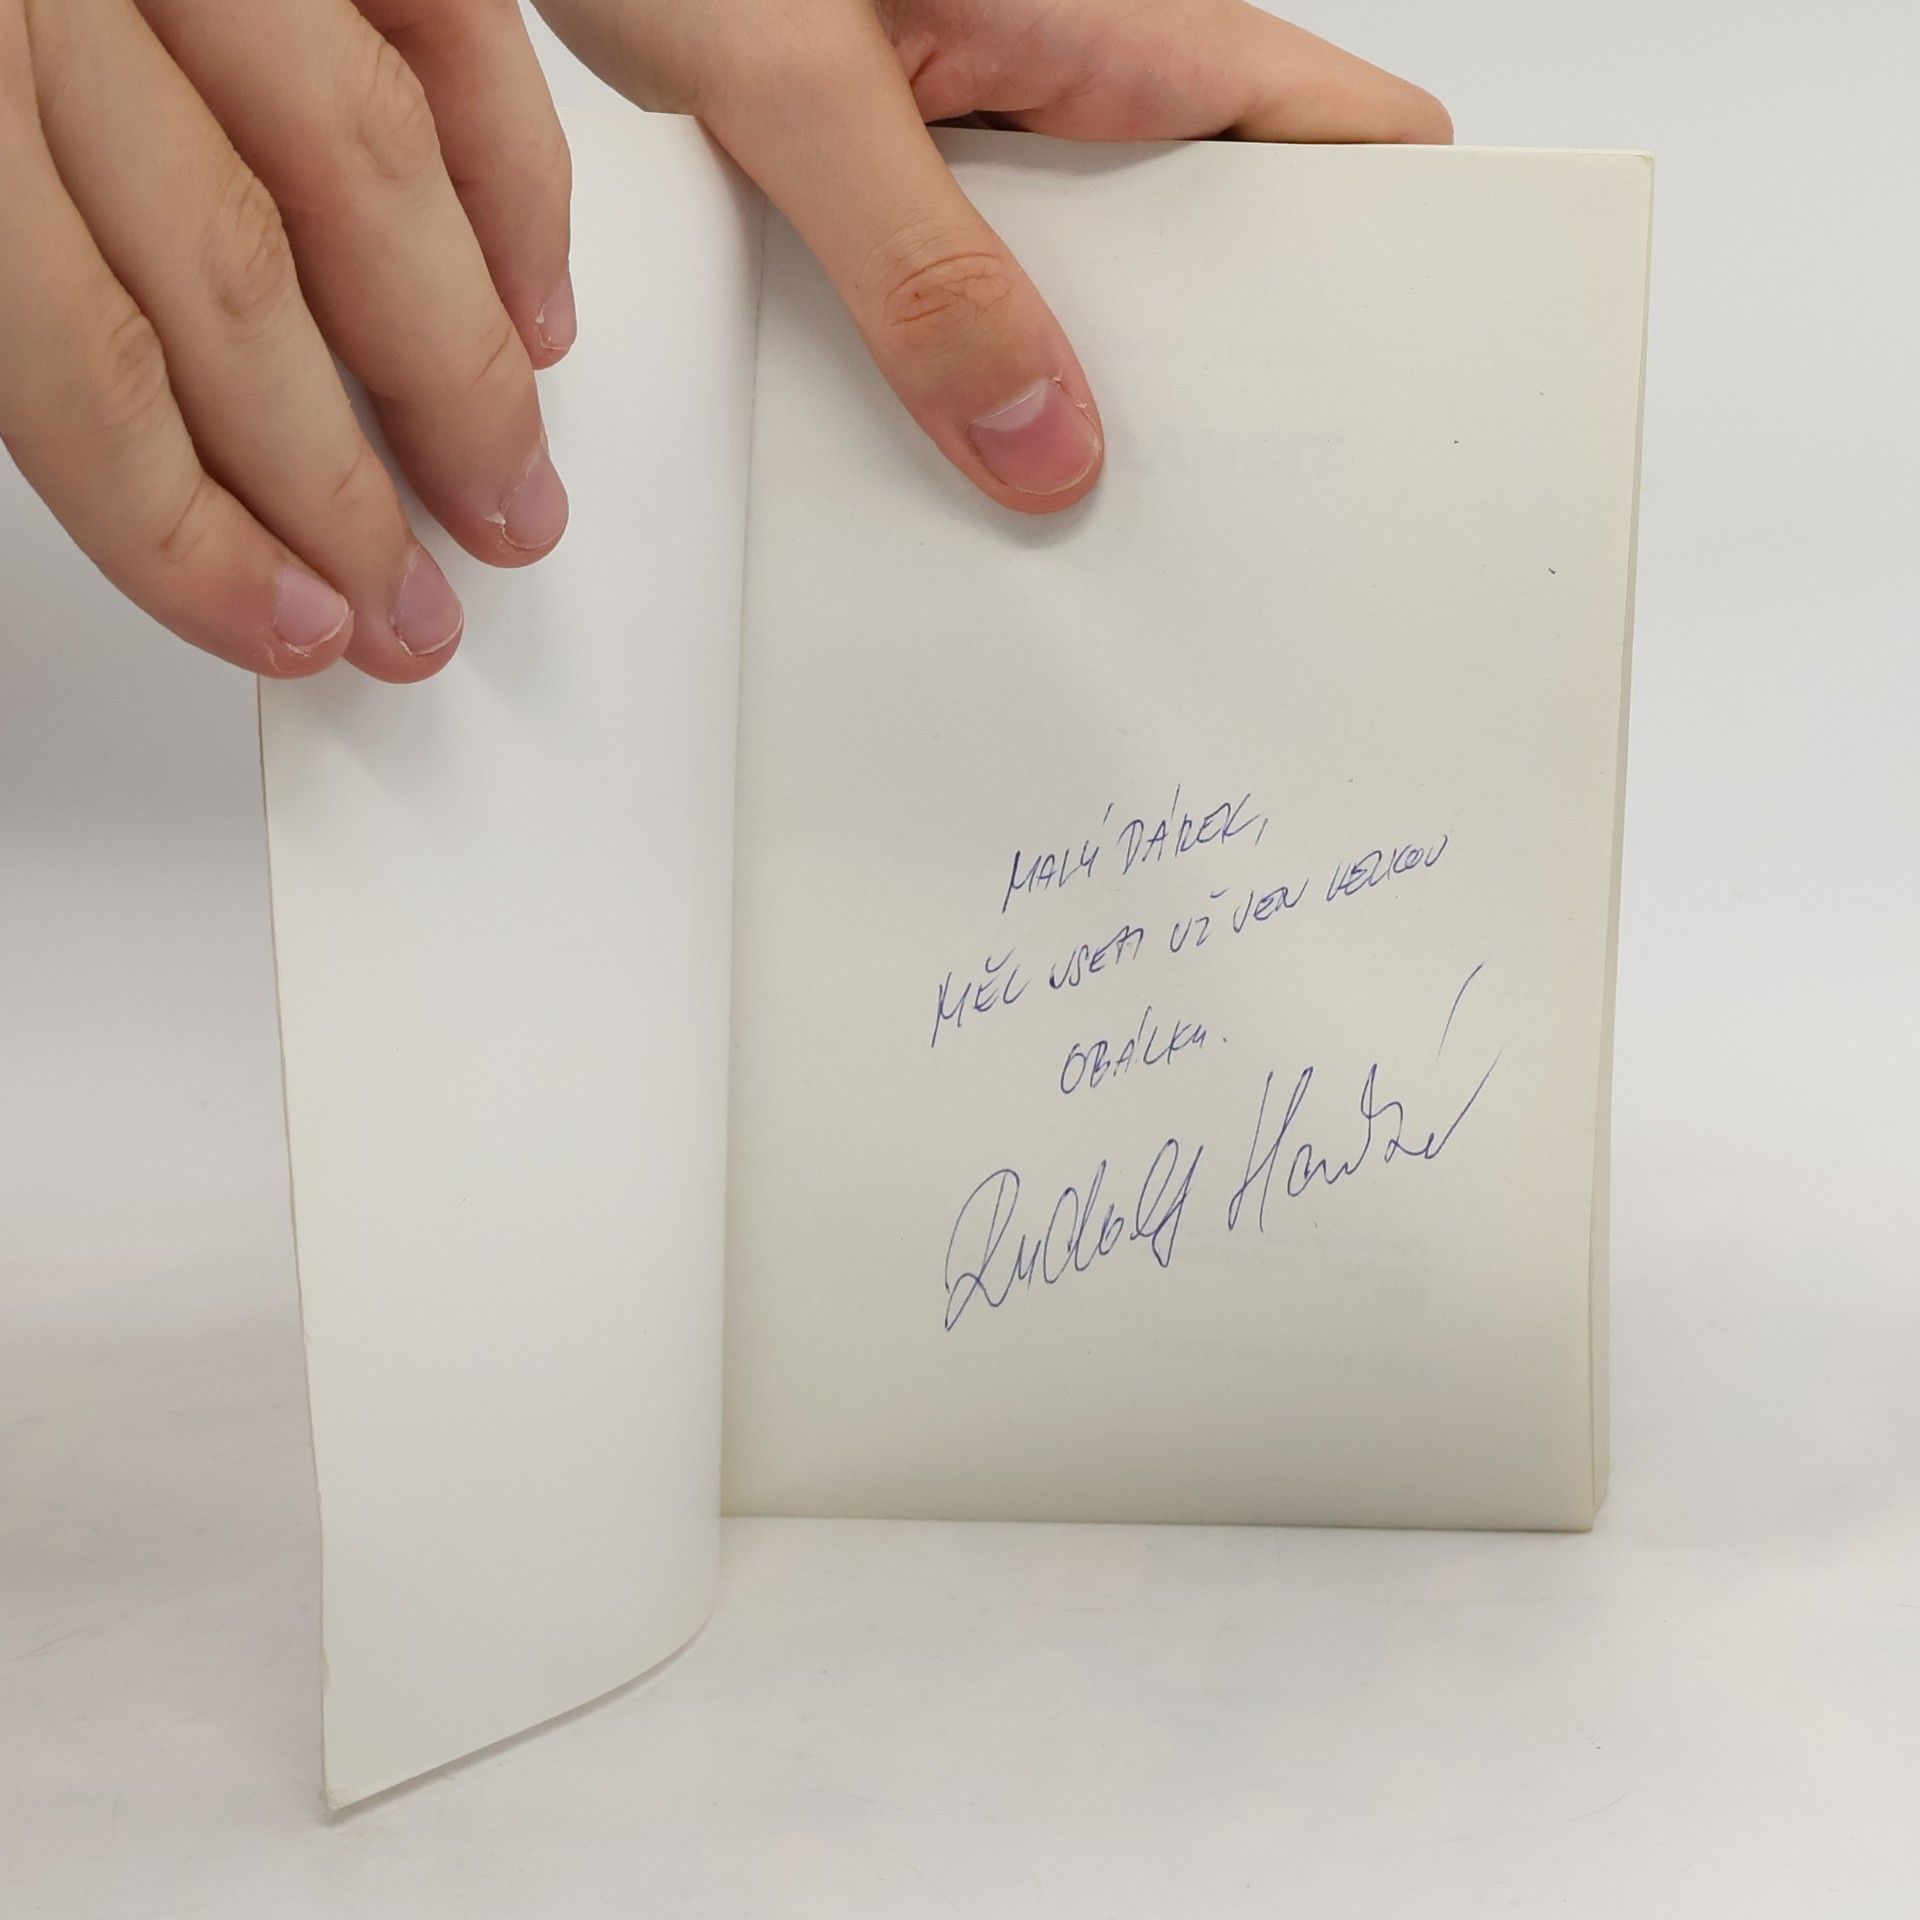 MALÝ DÁREK,
MĚL VSETI UŽ JEN VELKOU
OBÁLKU.
Rudolf